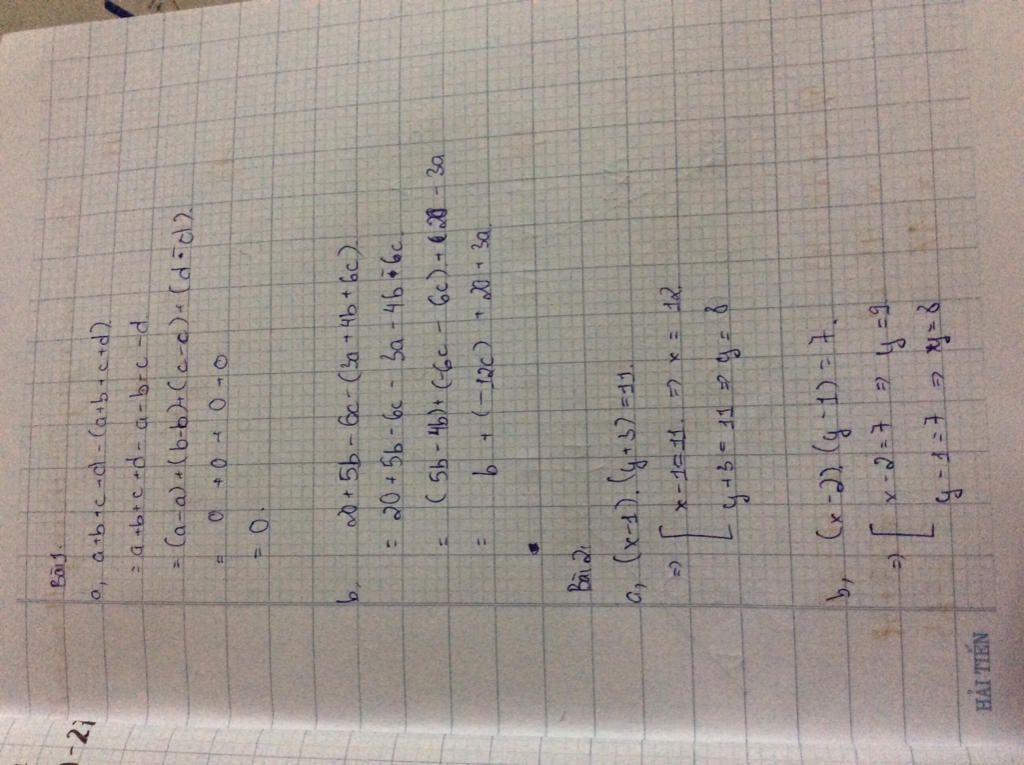 Bài 1.
a, a+b+c+d-(a+b+c+d)
= a+b+c+d-a-b+c-d
= (a-a)+(b-b)+(c-c)+(d-d).
= 0 + 0 + 0 + 0
= 0.
b, 20+5b-6c-(3a+4b+6c)
= 20+5b-6c-3a-4b-6c.
= (5b-4b)+(-6c-6c)+20-3a
= b+(-12c)+20+3a.
Bài 2.
a, (x-1).(y+3)=11.
=> [ x-1=11. => x=12.
y+3=11 => y=8
b, (x-2).(y-1)=7.
=> [ x-2=7 => y=9
y-1=7 => y=8
HẢI TIẾN
-2;